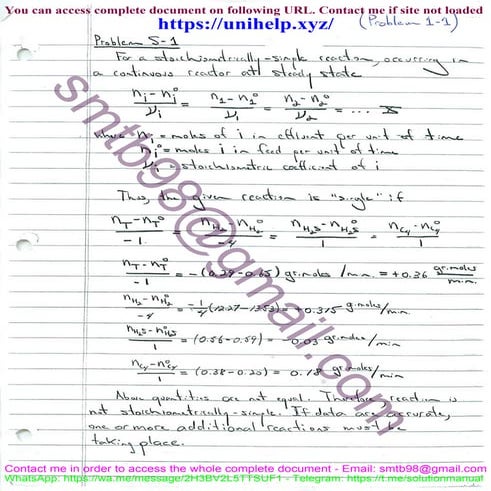 You can access complete document on following URL. Contact me if site not loaded
https://unihelp.xyz/
(Problem 1-1)
Problem 5-1
For a stoichiometrically-simple reaction, occurring in
a continuous reactor at steady state
nᵢ-nᵢ° / νᵢ = n₁-n₁° / ν₁ = n₂-n₂° / ν₂ = ...
where nᵢ = moles of i in effluent per unit of time
nᵢ° = moles i in feed per unit of time
νᵢ = stoichiometric coefficient of i
Thus, the given reaction is "single" if
n_T-n_T° / -1 = n_H₂-n_H₂° / -4 = n_H₂S-n_H₂S° / 1 = n_C₄-n_C₄° / 1
n_T-n_T° / -1 = -(0.29-0.65) gr.moles/min. = +0.36 gr.moles/min.
n_H₂-n_H₂° / -4 = -1/4(12.27-13.53) = +0.315 gr.moles/min
n_H₂S-n_H₂S° / 1 = (0.56-0.59) = -0.03 gr.moles/min
n_C₄-n_C₄° / 1 = (0.38-0.20) = 0.18 gr.moles/min
Above quantities are not equal. Therefore, reaction is
not stoichiometrically-simple. If data are accurate,
one or more additional reactions must be
taking place.
smtb98@gmail.com
Contact me in order to access the whole complete document - Email: smtb98@gmail.com
WhatsApp: https://wa.me/message/2H3BV2L5TTSUF1 - Telegram: https://t.me/solutionmanual